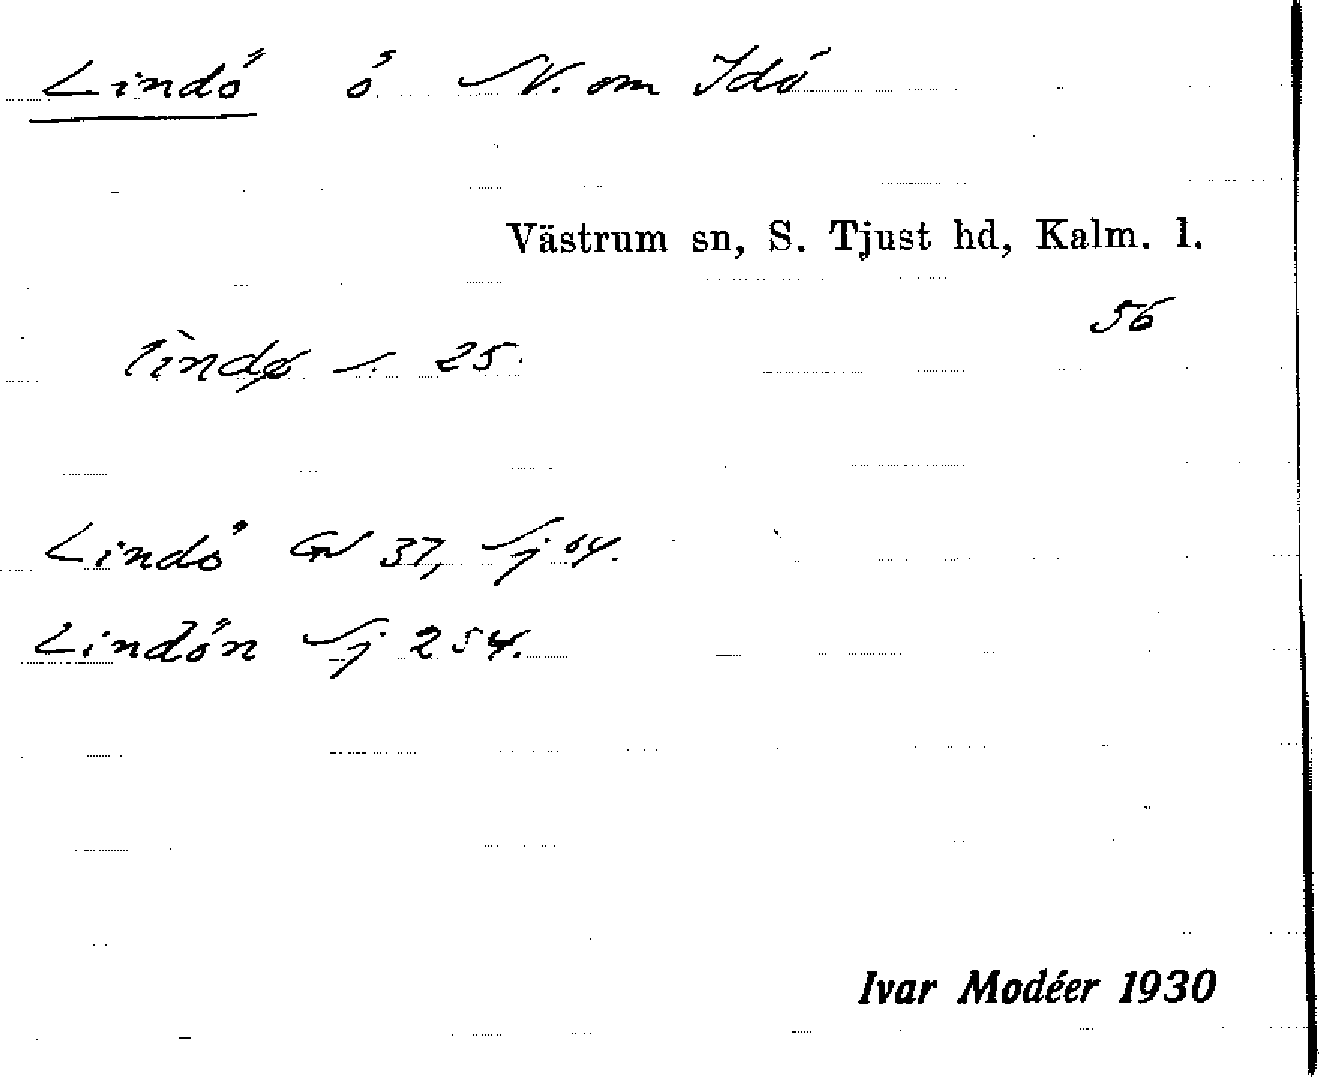 Lindö ö N. om Idö
Västrum sn, S. Tjust hd, Kalm. l.
56
lìndø s. 25.
Lindö GV 37, Sj 64.
Lindön Sj 254.
Ivar Modéer 1930